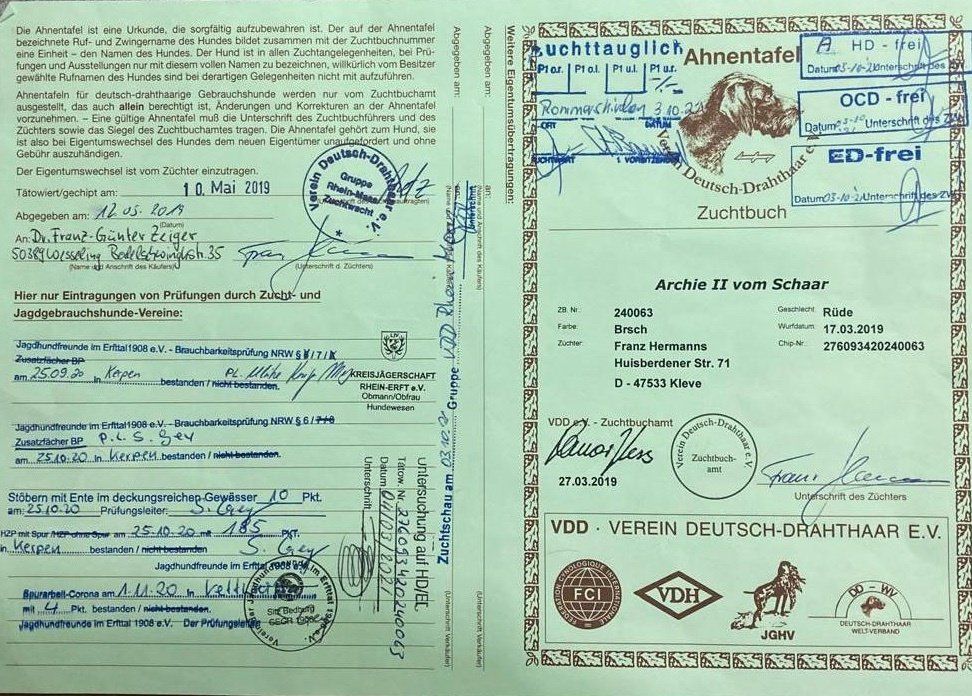 Die Ahnentafel ist eine Urkunde, die sorgfältig aufzubewahren ist. Der auf der Ahnentafel
bezeichnete Ruf- und Zwingername des Hundes bildet zusammen mit der Zuchtbuchnummer
eine Einheit – den Namen des Hundes. Der Hund ist in allen Zuchtangelegenheiten, bei Prü-
fungen und Ausstellungen nur mit diesem vollen Namen zu bezeichnen, willkürlich vom Besitzer
gewählte Rufnamen des Hundes sind bei derartigen Gelegenheiten nicht mit aufzuführen.
Ahnentafeln für deutsch-drahthaarige Gebrauchshunde werden nur vom Zuchtbuchamt
ausgestellt, das auch allein berechtigt ist, Änderungen und Korrekturen an der Ahnentafel
vorzunehmen. – Eine gültige Ahnentafel muß die Unterschrift des Zuchtbuchführers und des
Züchters sowie das Siegel des Zuchtbuchamtes tragen. Die Ahnentafel gehört zum Hund, sie
ist also bei Eigentumswechsel des Hundes dem neuen Eigentümer unaufgefordert und ohne
Gebühr auszuhändigen.
Der Eigentumswechsel ist vom Züchter einzutragen.
Tätowiert/gechipt am: 10. Mai 2019
Verein Deutsch-Drahthaar e.V.
Gruppe
Rhein-Maas
Zuchtwacht
Abgegeben am: 12.05.2019
(Datum)
An: Dr. Franz-Günter Zeiger
50389 Wesseling
(Name und Anschrift des Käufers)
(Unterschrift d. Züchters)
Hier nur Eintragungen von Prüfungen durch Zucht- und
Jagdgebrauchshunde-Vereine:
Jagdhundfreunde im Erfttal1908 e.V. - Brauchbarkeitsprüfung NRW § 6/7/8
Zusatzfächer BP
am 25.09.20 in Kerpen bestanden / nicht bestanden.
KREISJÄGERSCHAFT
RHEIN-ERFT e.V.
Obmann/Obfrau
Hundewesen
Jagdhundfreunde im Erfttal1908 e.V. - Brauchbarkeitsprüfung NRW § 6 / 7/8
Zusatzfächer BP P.L. S. Gey
am 25.10.20 in Kerpen bestanden / nicht bestanden.
Stöbern mit Ente im deckungsreichen Gewässer 10 Pkt.
am: 25.10.20 Prüfungsleiter: S. Gey
HZP mit Spur / HZP ohne Spur am 25.10.20 mit 185 PKT.
in Kerpen bestanden / nicht bestanden S. Gey
Jagdhundfreunde im Erfttal 1908 e.V.
Spurarbeit-Corona am 1.11.20 in
mit 4 Pkt. bestanden / nicht bestanden.
Jagdhundfreunde im Erfttal 1908 e.V. Der Prüfungsleiter
Sitz Bedburg
GEGR 1908
Abgegeben am:
Abgegeben am:
Weitere Eigentumsübertragungen:
an:
(Name und Anschrift des Käufers)
(Unterschrift Verkäufers)
(Unterschrift Verkäufers)
Zuchtschau am 03.10.21 Gruppe VDD
Untersuchung auf HD/EL
Tätow. Nr. 276093420240063
Datum 04/03/2021
Unterschrift
Zuchttauglich
P1 o.r. P1 o.l. P1 u.l. P1 u.r.
Rommerskirchen 3.10.21
ORT DATUM
ZUCHTWART 1. VORSITZENDER
Ahnentafel
Verein Deutsch-Drahthaar e.V.
Zuchtbuch
A HD - frei
Datum 03-10-21 Unterschrift des ZW
OCD - frei
Datum 03-10-21 Unterschrift des ZW
ED-frei
Datum 03-10-21 Unterschrift des ZW
Archie II vom Schaar
ZB. Nr: 240063 Geschlecht: Rüde
Farbe: Brsch Wurfdatum: 17.03.2019
Züchter: Franz Hermanns Chip-Nr.: 276093420240063
Huisberdener Str. 71
D - 47533 Kleve
VDD e.V. - Zuchtbuchamt
27.03.2019
Verein Deutsch-Drahthaar e.V.
Zuchtbuch-
amt
Unterschrift des Züchters
VDD · VEREIN DEUTSCH-DRAHTHAAR E.V.
FCI
VDH
JGHV
DD - WV
DEUTSCH-DRAHTHAAR
WELT-VERBAND